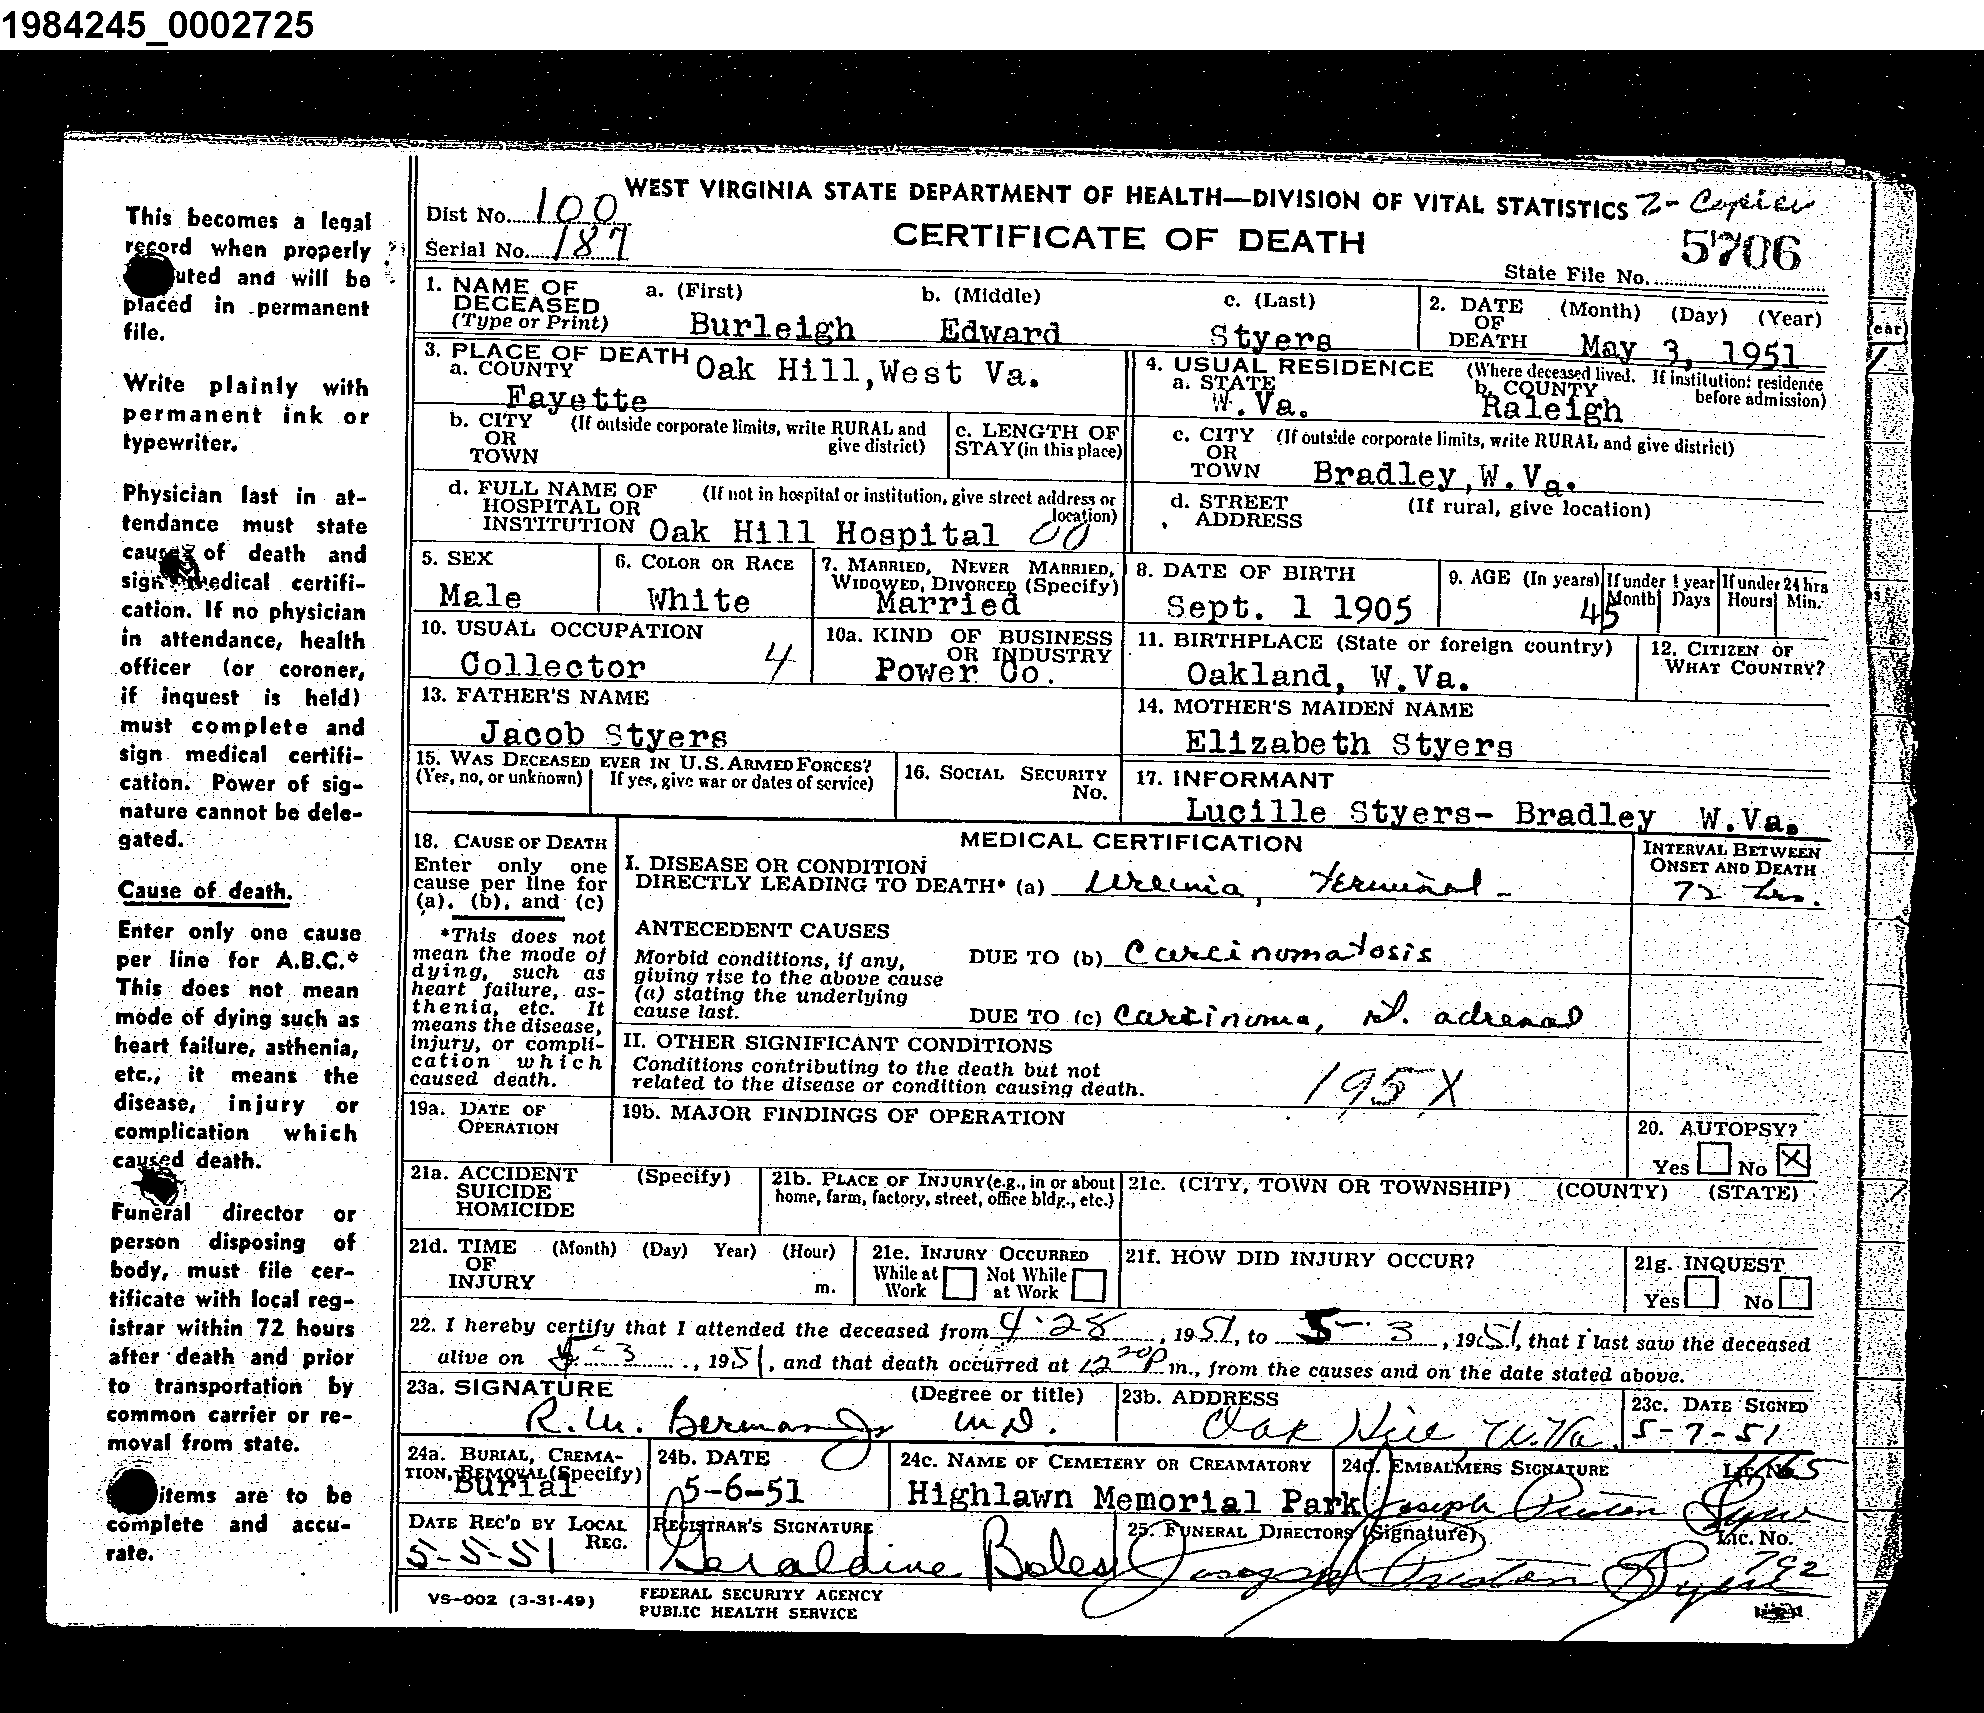 1984245_0002725
This becomes a legal
record when properly
uted and will be
placed in permanent
file.
Write plainly with
permanent ink or
typewriter.
Physician last in at-
tendance must state
causes of death and
sign medical certifi-
cation. If no physician
in attendance, health
officer (or coroner,
if inquest is held)
must complete and
sign medical certifi-
cation. Power of sig-
nature cannot be dele-
gated.
Cause of death.
Enter only one cause
per line for A.B.C.*
This does not mean
mode of dying such as
heart failure, asthenia,
etc., it means the
disease, injury or
complication which
caused death.
Funeral director or
person disposing of
body, must file cer-
tificate with local reg-
istrar within 72 hours
after death and prior
to transportation by
common carrier or re-
moval from state.
items are to be
complete and accu-
rate.
WEST VIRGINIA STATE DEPARTMENT OF HEALTH—DIVISION OF VITAL STATISTICS 2- Copies
Dist No. 100
CERTIFICATE OF DEATH
Serial No. 187
State File No. 5706
1. NAME OF DECEASED (Type or Print) a. (First) b. (Middle) c. (Last)
Burleigh Edward Styers
2. DATE OF DEATH (Month) (Day) (Year)
May 3, 1951
3. PLACE OF DEATH Oak Hill, West Va.
a. COUNTY
Fayette
4. USUAL RESIDENCE (Where deceased lived. If institution: residence before admission)
a. STATE b. COUNTY
W.Va. Raleigh
b. CITY OR TOWN (If outside corporate limits, write RURAL and give district)
c. LENGTH OF STAY (in this place)
c. CITY OR TOWN (If outside corporate limits, write RURAL and give district)
Bradley, W.Va.
d. FULL NAME OF HOSPITAL OR INSTITUTION (If not in hospital or institution, give street address or location)
Oak Hill Hospital
d. STREET ADDRESS (If rural, give location)
5. SEX
Male
6. COLOR OR RACE
White
7. MARRIED, NEVER MARRIED, WIDOWED, DIVORCED (Specify)
Married
8. DATE OF BIRTH
Sept. 1 1905
9. AGE (In years) If under 1 year Month Days If under 24 hrs Hours Min.
45
10. USUAL OCCUPATION
Collector 4
10a. KIND OF BUSINESS OR INDUSTRY
Power Co.
11. BIRTHPLACE (State or foreign country)
Oakland, W.Va.
12. CITIZEN OF WHAT COUNTRY?
13. FATHER'S NAME
Jacob Styers
14. MOTHER'S MAIDEN NAME
Elizabeth Styers
15. WAS DECEASED EVER IN U.S. ARMED FORCES?
(Yes, no, or unknown) If yes, give war or dates of service)
16. SOCIAL SECURITY No.
17. INFORMANT
Lucille Styers- Bradley W.Va.
18. CAUSE OF DEATH
Enter only one
cause per line for
(a), (b), and (c)
*This does not
mean the mode of
dying, such as
heart failure, as-
thenia, etc. It
means the disease,
injury, or compli-
cation which
caused death.
MEDICAL CERTIFICATION
INTERVAL BETWEEN ONSET AND DEATH
I. DISEASE OR CONDITION
DIRECTLY LEADING TO DEATH* (a) Uremia, terminal - 72 hrs.
ANTECEDENT CAUSES
Morbid conditions, if any,
giving rise to the above cause
(a) stating the underlying
cause last.
DUE TO (b) Carcinomatosis
DUE TO (c) Carcinoma, rt. adrenal
II. OTHER SIGNIFICANT CONDITIONS
Conditions contributing to the death but not
related to the disease or condition causing death.
195X
19a. DATE OF OPERATION
19b. MAJOR FINDINGS OF OPERATION
20. AUTOPSY?
Yes No X
21a. ACCIDENT SUICIDE HOMICIDE (Specify)
21b. PLACE OF INJURY (e.g., in or about home, farm, factory, street, office bldg., etc.)
21c. (CITY, TOWN OR TOWNSHIP) (COUNTY) (STATE)
21d. TIME OF INJURY (Month) (Day) Year) (Hour) m.
21e. INJURY OCCURRED
While at Work Not While at Work
21f. HOW DID INJURY OCCUR?
21g. INQUEST
Yes No
22. I hereby certify that I attended the deceased from 4-28, 1951, to 5-3, 1951, that I last saw the deceased
alive on 5-3, 1951, and that death occurred at 12 20 P m., from the causes and on the date stated above.
23a. SIGNATURE (Degree or title)
R.M. Berman Jr M.D.
23b. ADDRESS
Oak Hill, W.Va.
23c. DATE SIGNED
5-7-51
24a. BURIAL, CREMATION, REMOVAL (Specify)
Burial
24b. DATE
5-6-51
24c. NAME OF CEMETERY OR CREAMATORY
Highlawn Memorial Park
24d. EMBALMERS SIGNATURE Lic. No.
Joseph Preston
DATE REC'D BY LOCAL REG.
5-5-51
REGISTRAR'S SIGNATURE
Geraldine Boles
25. FUNERAL DIRECTORS (Signature) Lic. No.
Joseph Preston 792
VS-002 (3-31-49)
FEDERAL SECURITY AGENCY
PUBLIC HEALTH SERVICE
ear)